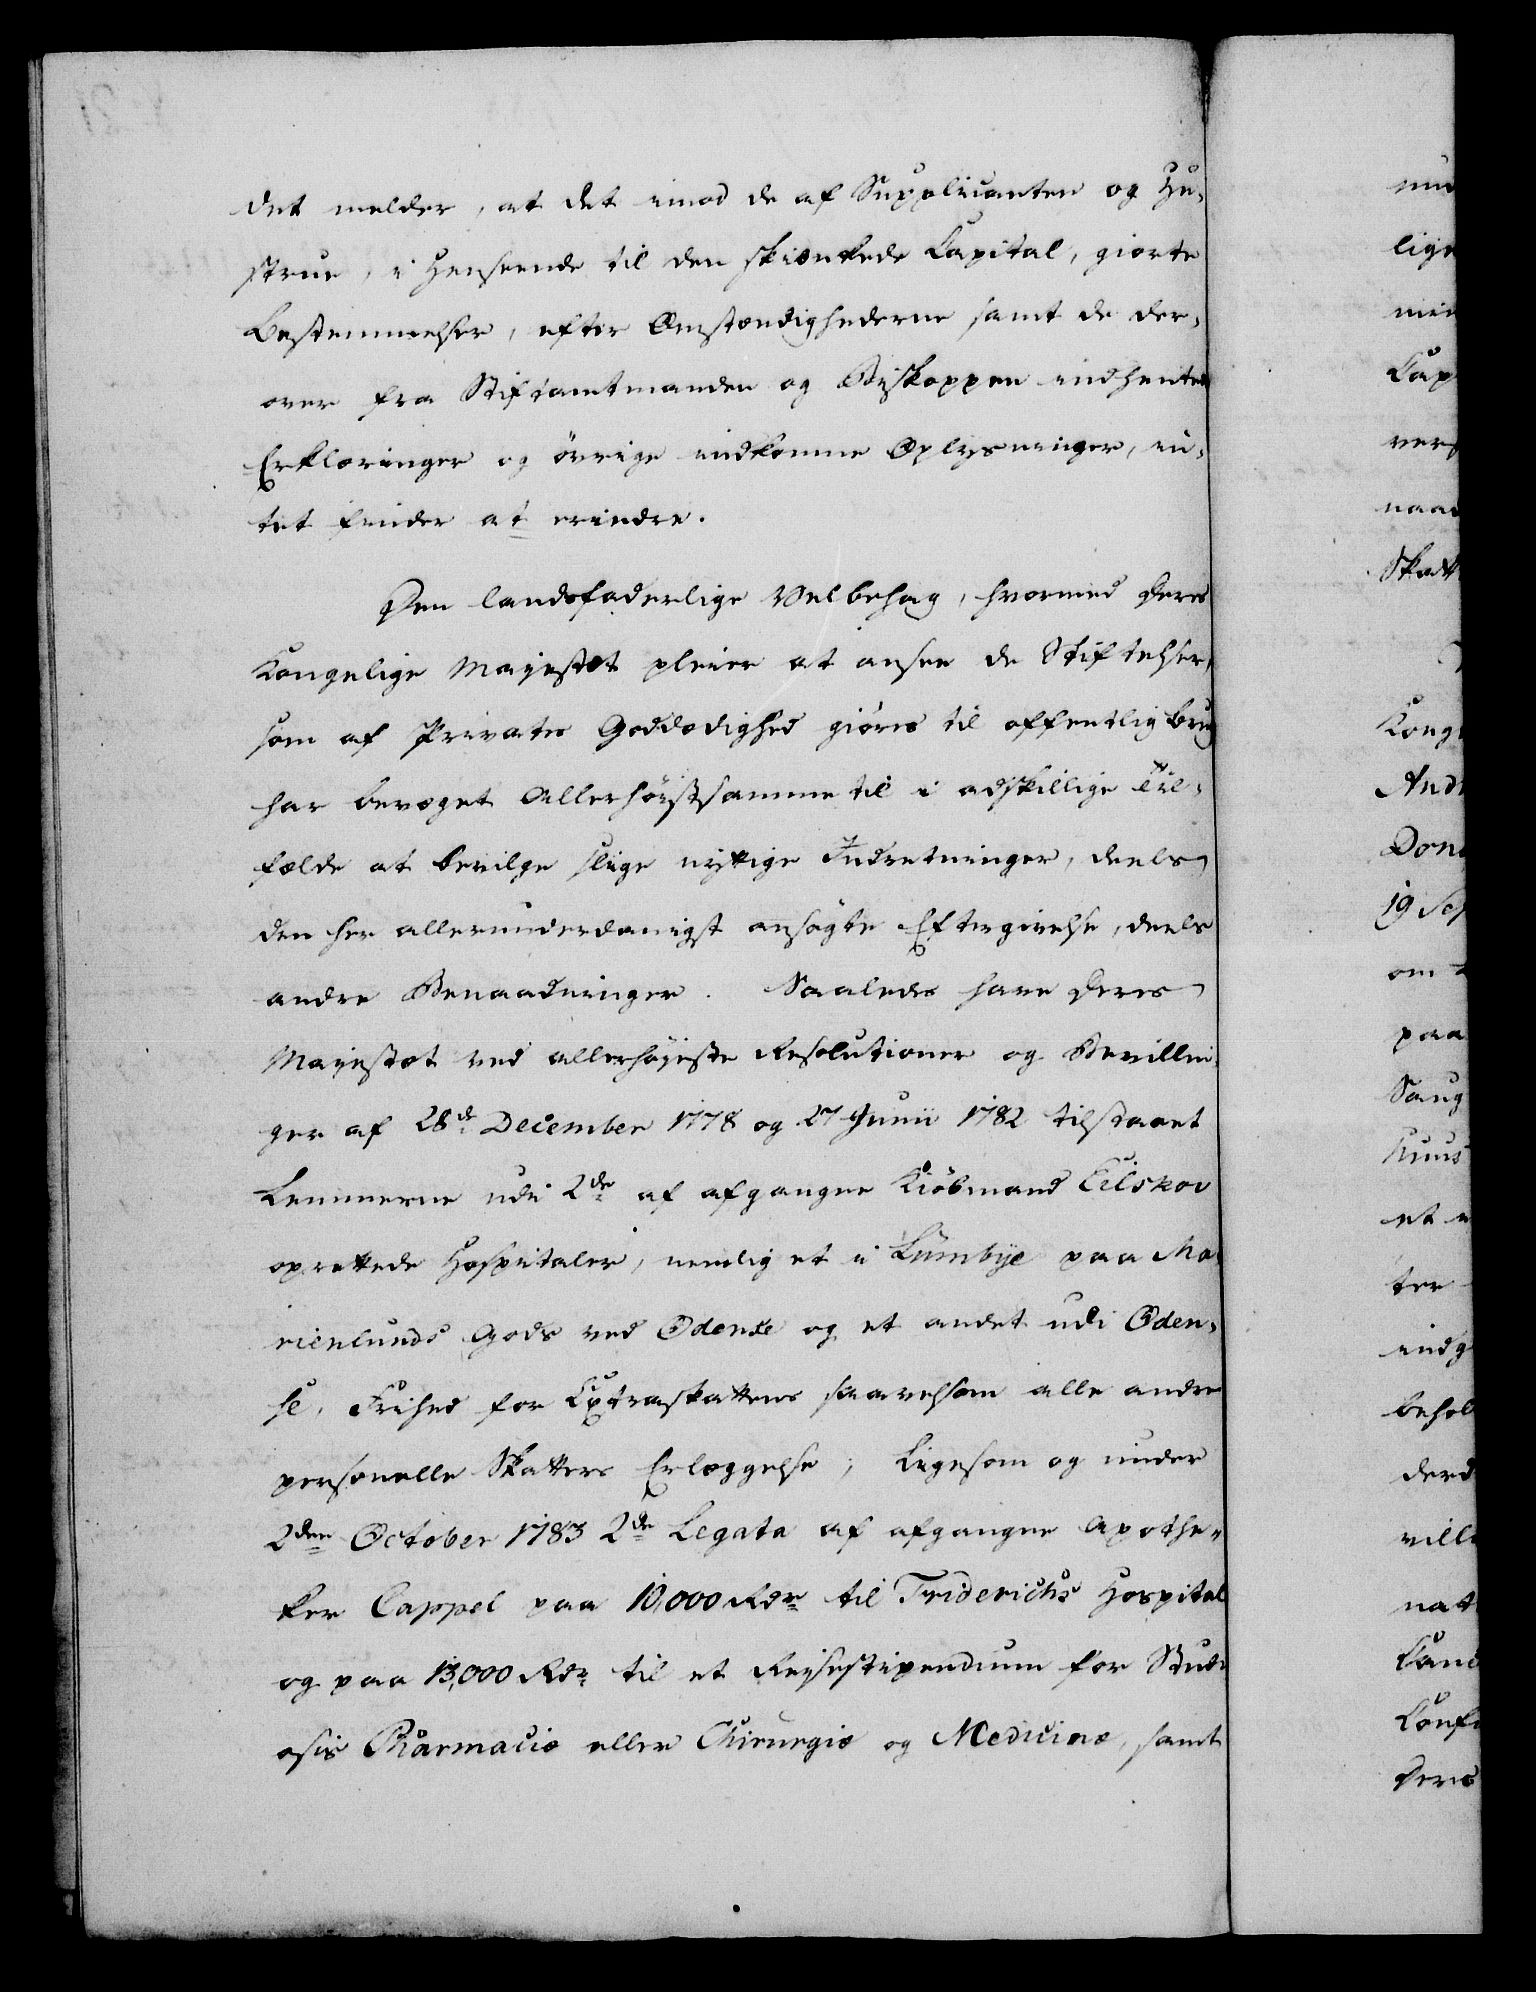 det melder, at det imod de af Supplicanten og Hu-
strue, i Henseende til den skienkede Capital, giorte
Bestemmelser, efter Omstændighederne samt de der-
over fra Stiftamtmanden og Biskoppen indhentede
Erklæringer og övrige indkomne Oplysninger, in-
tet finder at erindre.
Den landsfaderlige Velbehag, hvormed Deres
Kongelige Majestæt pleier at ansee de Stiftelser,
som af Privates Goddædighed giöres til offentlig Brug
har bevæget Allerhöistsamme til i adskillige Til-
fælde at bevilge slige nyttige Indretninger, deels
den her allerunderdanigst ansögte Eftergivelse, deels
andre Benaadninger. Saaledes have Deres
Majestæt ved allerhöjeste Resolutioner og Bevillin-
ger af 28d December 1778 og 27 Junii 1782 tilstaaet
Lemmerne udi 2de af afgangne Kiöbmand Eilskov
oprettede Hospitaler, nemlig et i Lumbye paa Ma-
rienlunds Gods ved Odense og et andet udi Oden-
se, Frihed for Extraskattens saavelsom alle andre
personelle Skatters Erlæggelse; Ligesom og under
2den October 1783 2de Legata af afgangne Apothe-
ker Cappel paa 10,000 Rdr til Friderichs Hospital
og paa 13,000 Rdr til et Reysestipendium for Studi-
osis Pharmaciæ eller Chirurgiæ og Medicinæ, samt
lige
Cap
naad
Skatt
Kong
And
Don
19 Sep
om
paa
Saug
et
ter
indg
behol
derd
vill
nat
Canc
Conf
Deres